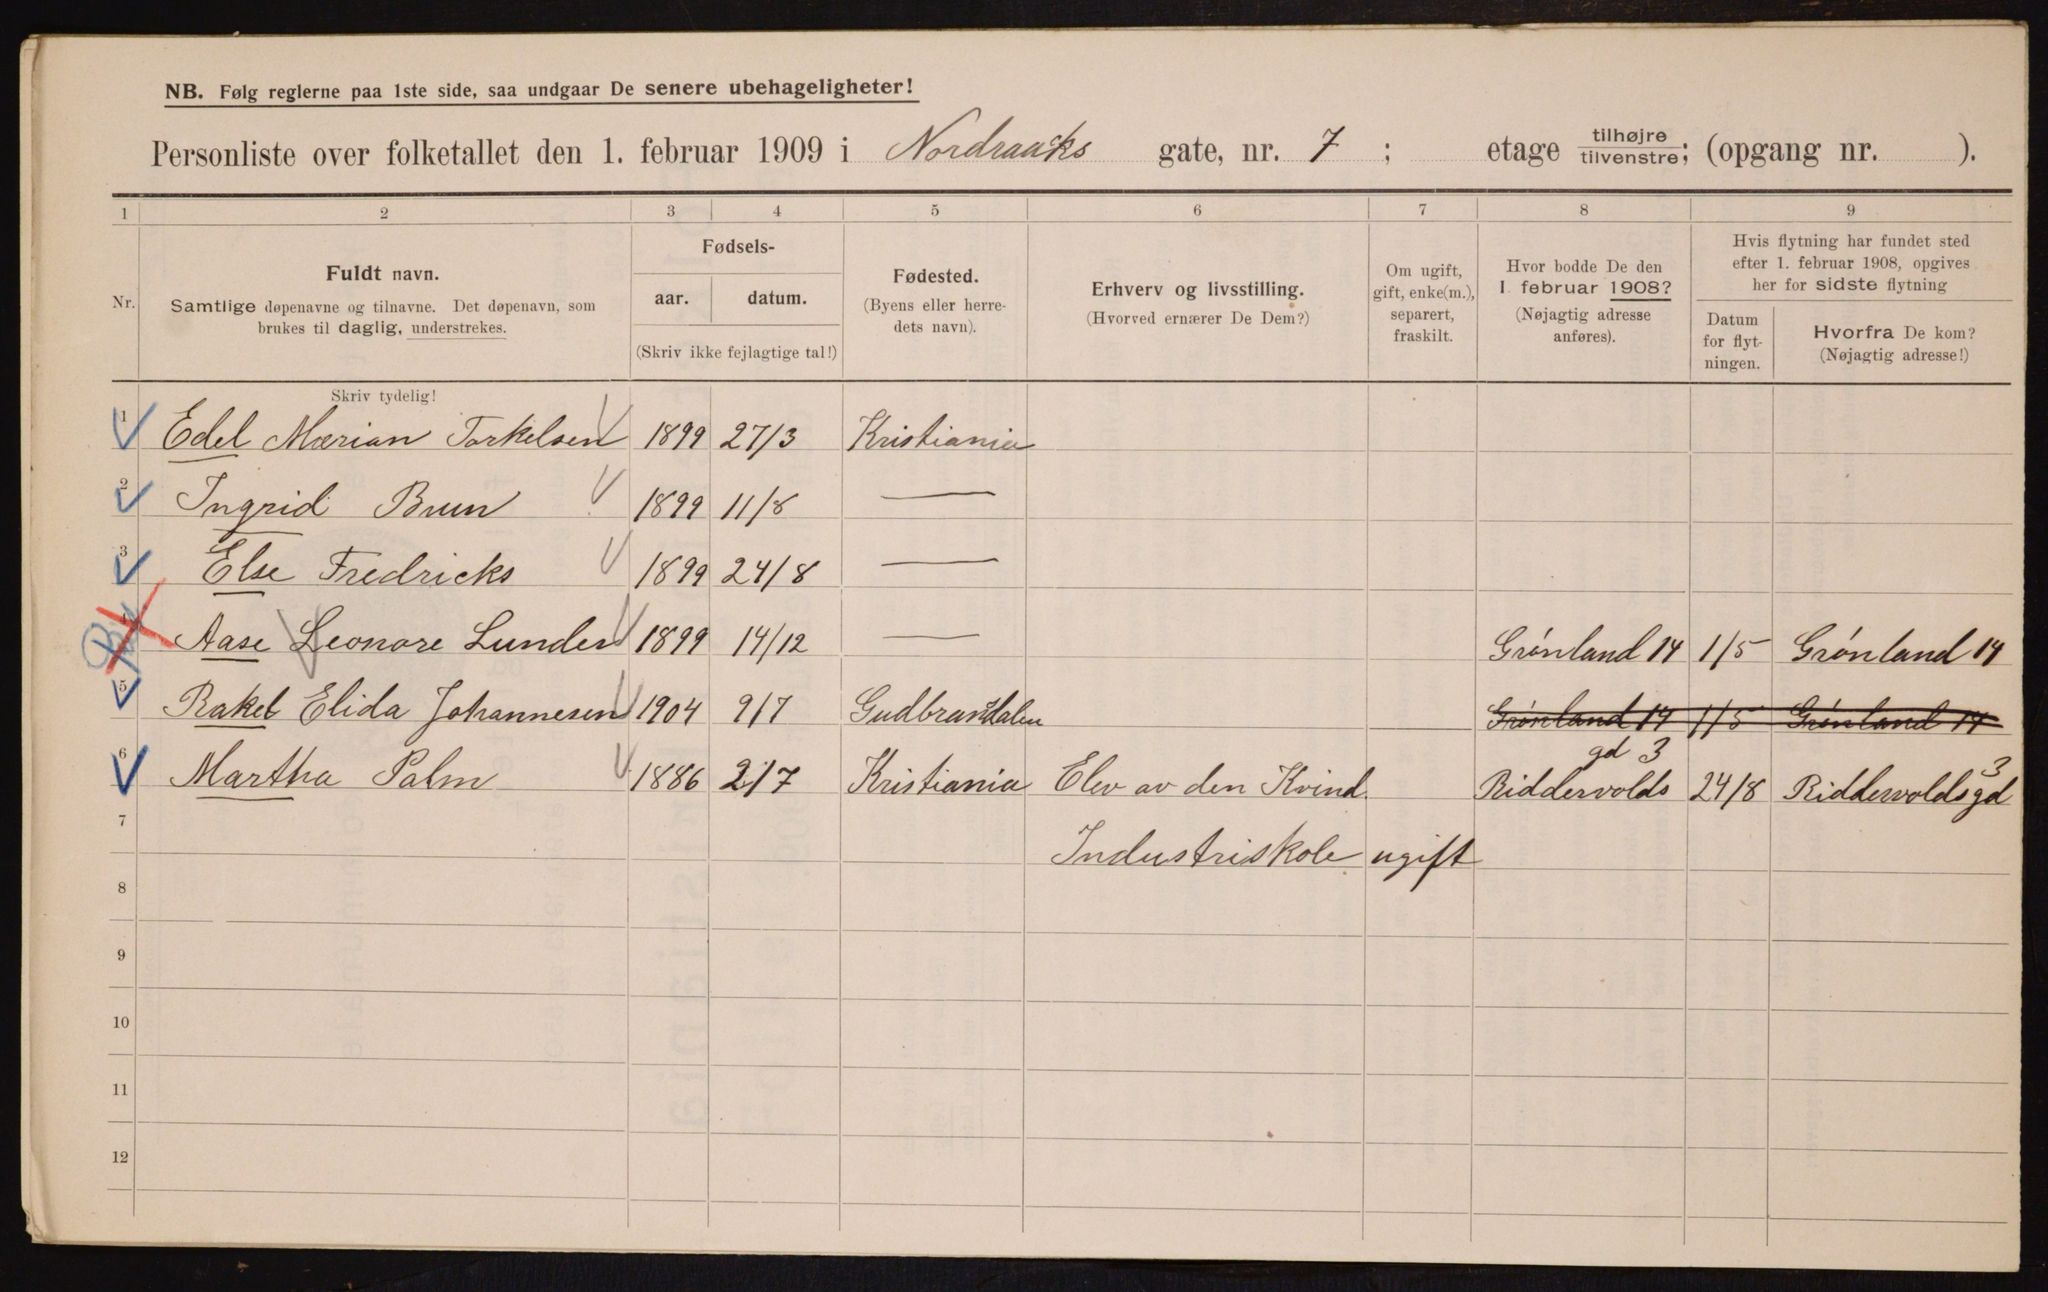 NB. Følg reglerne paa 1ste side, saa undgaar De senere ubehageligheter!
Personliste over folketallet den 1. februar 1909 i Nordraaks gate, nr. 7 ; etage tilhøjre tilvenstre; (opgang nr. ).
1 2 3 4 5 6 7 8 9
Nr.
Fuldt navn.
Samtlige døpenavne og tilnavne. Det døpenavn, som
brukes til daglig, understrekes.
Fødsels-
aar. datum.
(Skriv ikke fejlagtige tal!)
Fødested.
(Byens eller herre-
dets navn).
Erhverv og livsstilling.
(Hvorved ernærer De Dem?)
Om ugift,
gift, enke(m.),
separert,
fraskilt.
Hvor bodde De den
1. februar 1908?
(Nøjagtig adresse
anføres).
Hvis flytning har fundet sted
efter 1. februar 1908, opgives
her for sidste flytning
Datum
for flyt-
ningen.
Hvorfra De kom?
(Nøjagtig adresse!)
Skriv tydelig!
1 Edel Mærian Torkelsen 1899 27/3 Kristiania
2 Ingrid Brun 1899 11/8 —
3 Else Fredricks 1899 24/8 —
4 Aase Leonore Lunder 1899 14/12 — Grønland 14 1/5 Grønland 14
5 Rakel Elida Johannesen 1904 9/7 Gudbransdalen Grønland 14 1/5 Grønland 14
gd 3
6 Martha Palm 1886 2/7 Kristiania Elev av den Kvind. Riddervolds 24/8 Riddervolds gd 3
7 Industriskole ugift
8
9
10
11
12